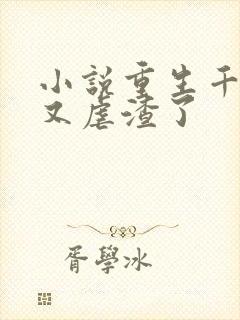 小説重生千
又虐渣了
胥學冰